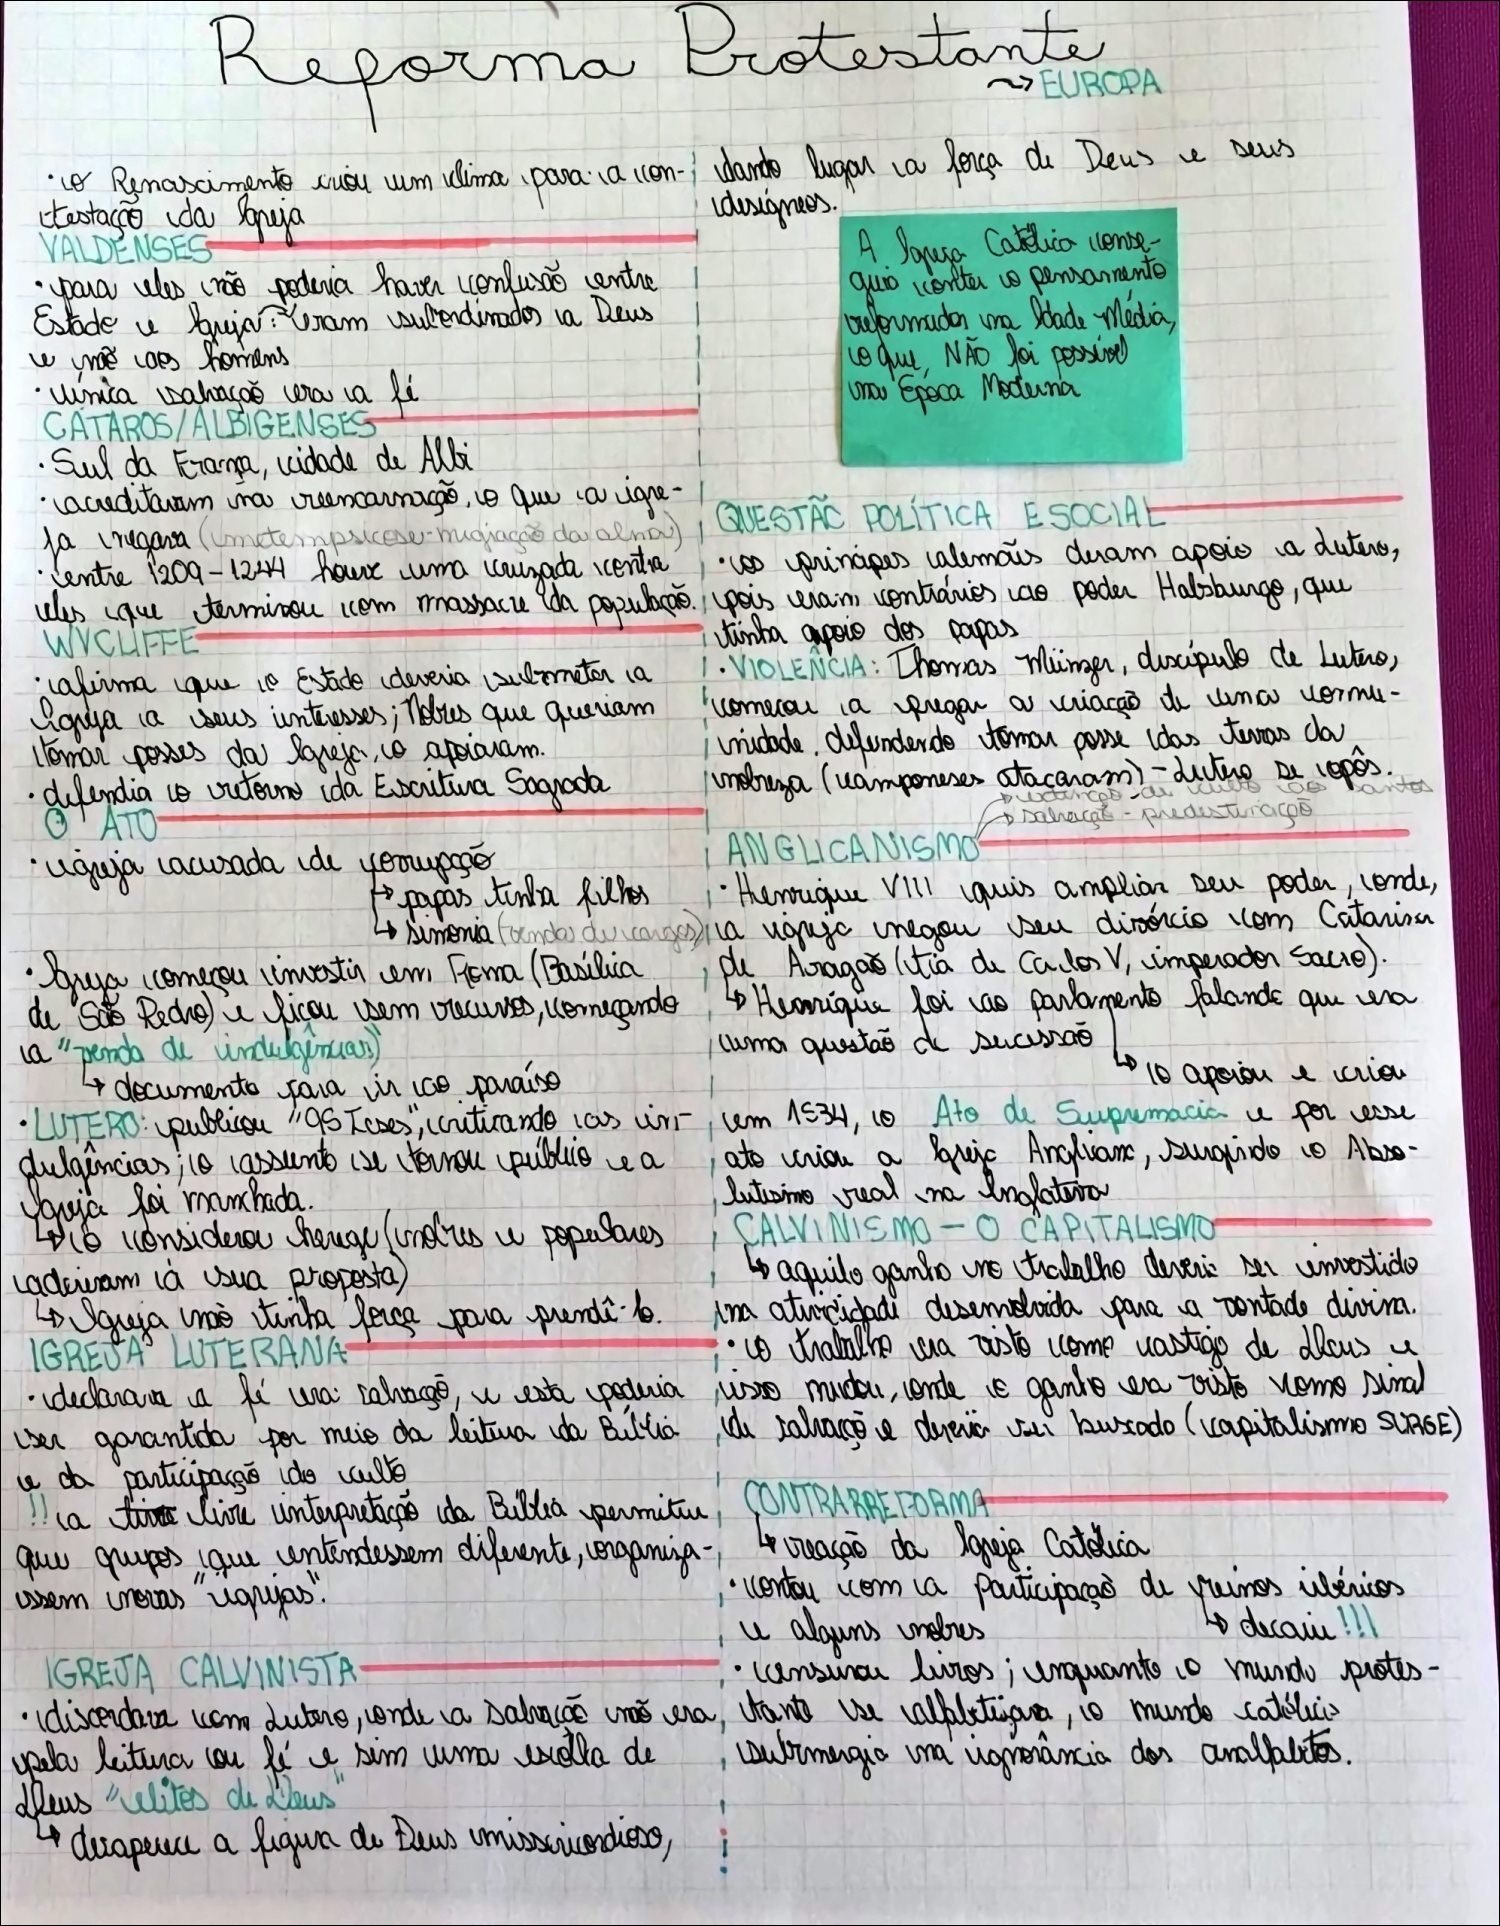 Reforma Protestante
~> EUROPA
· o Renascimento criou um clima para a con-
testação da Igreja
VALDENSES
· para eles não poderia haver confusão entre
Estado e Igreja: eram subordinados a Deus
e não aos homens
· única salvação era a fé
CÁTAROS/ALBIGENSES
· Sul da França, cidade de Albi
· acreditavam na reencarnação, o que a igre-
ja negava (metempsicose-migração da alma)
· entre 1209-1244 houve uma cruzada contra
eles que terminou com massacre da população.
WYCLIFFE
· afirma que o Estado deveria submeter a
Igreja a seus interesses; Nobres que queriam
tomar posses da Igreja, o apoiaram.
· defendia o retorno da Escritura Sagrada
O ATO
· igreja acusada de corrupção
↳ papas tinha filhos
↳ simonia (venda de cargos)
· Igreja começou investir em Roma (Basílica
de São Pedro) e ficou sem recursos, começando
a "venda de indulgências"
↳ documento para ir ao paraíso
· LUTERO: publicou "95 Teses", criticando as in-
dulgências; o assunto se tornou público e a
Igreja foi manchada.
↳ o considerou herege (nobres e populares
aderiram à sua proposta)
↳ Igreja não tinha força para prendê-lo.
IGREJA LUTERANA
· declarava a fé era salvação, e esta poderia
ser garantida por meio da leitura da Bíblia
e da participação do culto
!! a livre interpretação da Bíblia permitiu
que grupos que entendessem diferente, organiza-
ssem novas "igrejas".
IGREJA CALVINISTA
· discordava com Lutero, onde a salvação não era
pela leitura ou fé e sim uma escolha de
Deus "eleitos de Deus"
↳ desaparece a figura de Deus misericordioso,
dando lugar a força de Deus e seus
desígneos.
A Igreja Católica conse-
guiu conter o pensamento
reformador na Idade Média,
o que, NÃO foi possível
na Época Moderna
QUESTÃO POLÍTICA E SOCIAL
· os príncipes alemães deram apoio a Lutero,
pois eram contrários ao poder Habsburgo, que
tinha apoio dos papas
· VIOLÊNCIA: Thomas Münzer, discípulo de Lutero,
começou a pregar a criação de uma comu-
nidade, defendendo tomar posse das terras da
nobreza (camponeses atacaram) - Lutero se opôs.
de culto aos santos
→ salvação - predestinação
ANGLICANISMO
· Henrique VIII quis ampliar seu poder, onde,
a igreja negou seu divórcio com Catarina
de Aragão (tia de Carlos V, imperador Sacro).
↳ Henrique foi ao parlamento falando que era
uma questão de sucessão
↳ o apoiou e criou
em 1534, o Ato de Supremacia e por esse
ato criou a Igreja Anglicana, surgindo o Abso-
lutismo real na Inglaterra
CALVINISMO - O CAPITALISMO
↳ aquilo ganho no trabalho deveria ser investido
na atividade desenvolvida para a vontade divina.
· o trabalho era visto como castigo de Deus e
isso mudou, onde o ganho era visto como sinal
de salvação e deveria ser buscado (capitalismo SURGE)
CONTRARREFORMA
↳ reação da Igreja Católica
· contou com a participação de reinos ibéricos
e alguns nobres ↳ decaiu!!!
· censurou livros; enquanto o mundo protes-
tante se alfabetizava, o mundo católico
submergia na ignorância dos analfabetos.